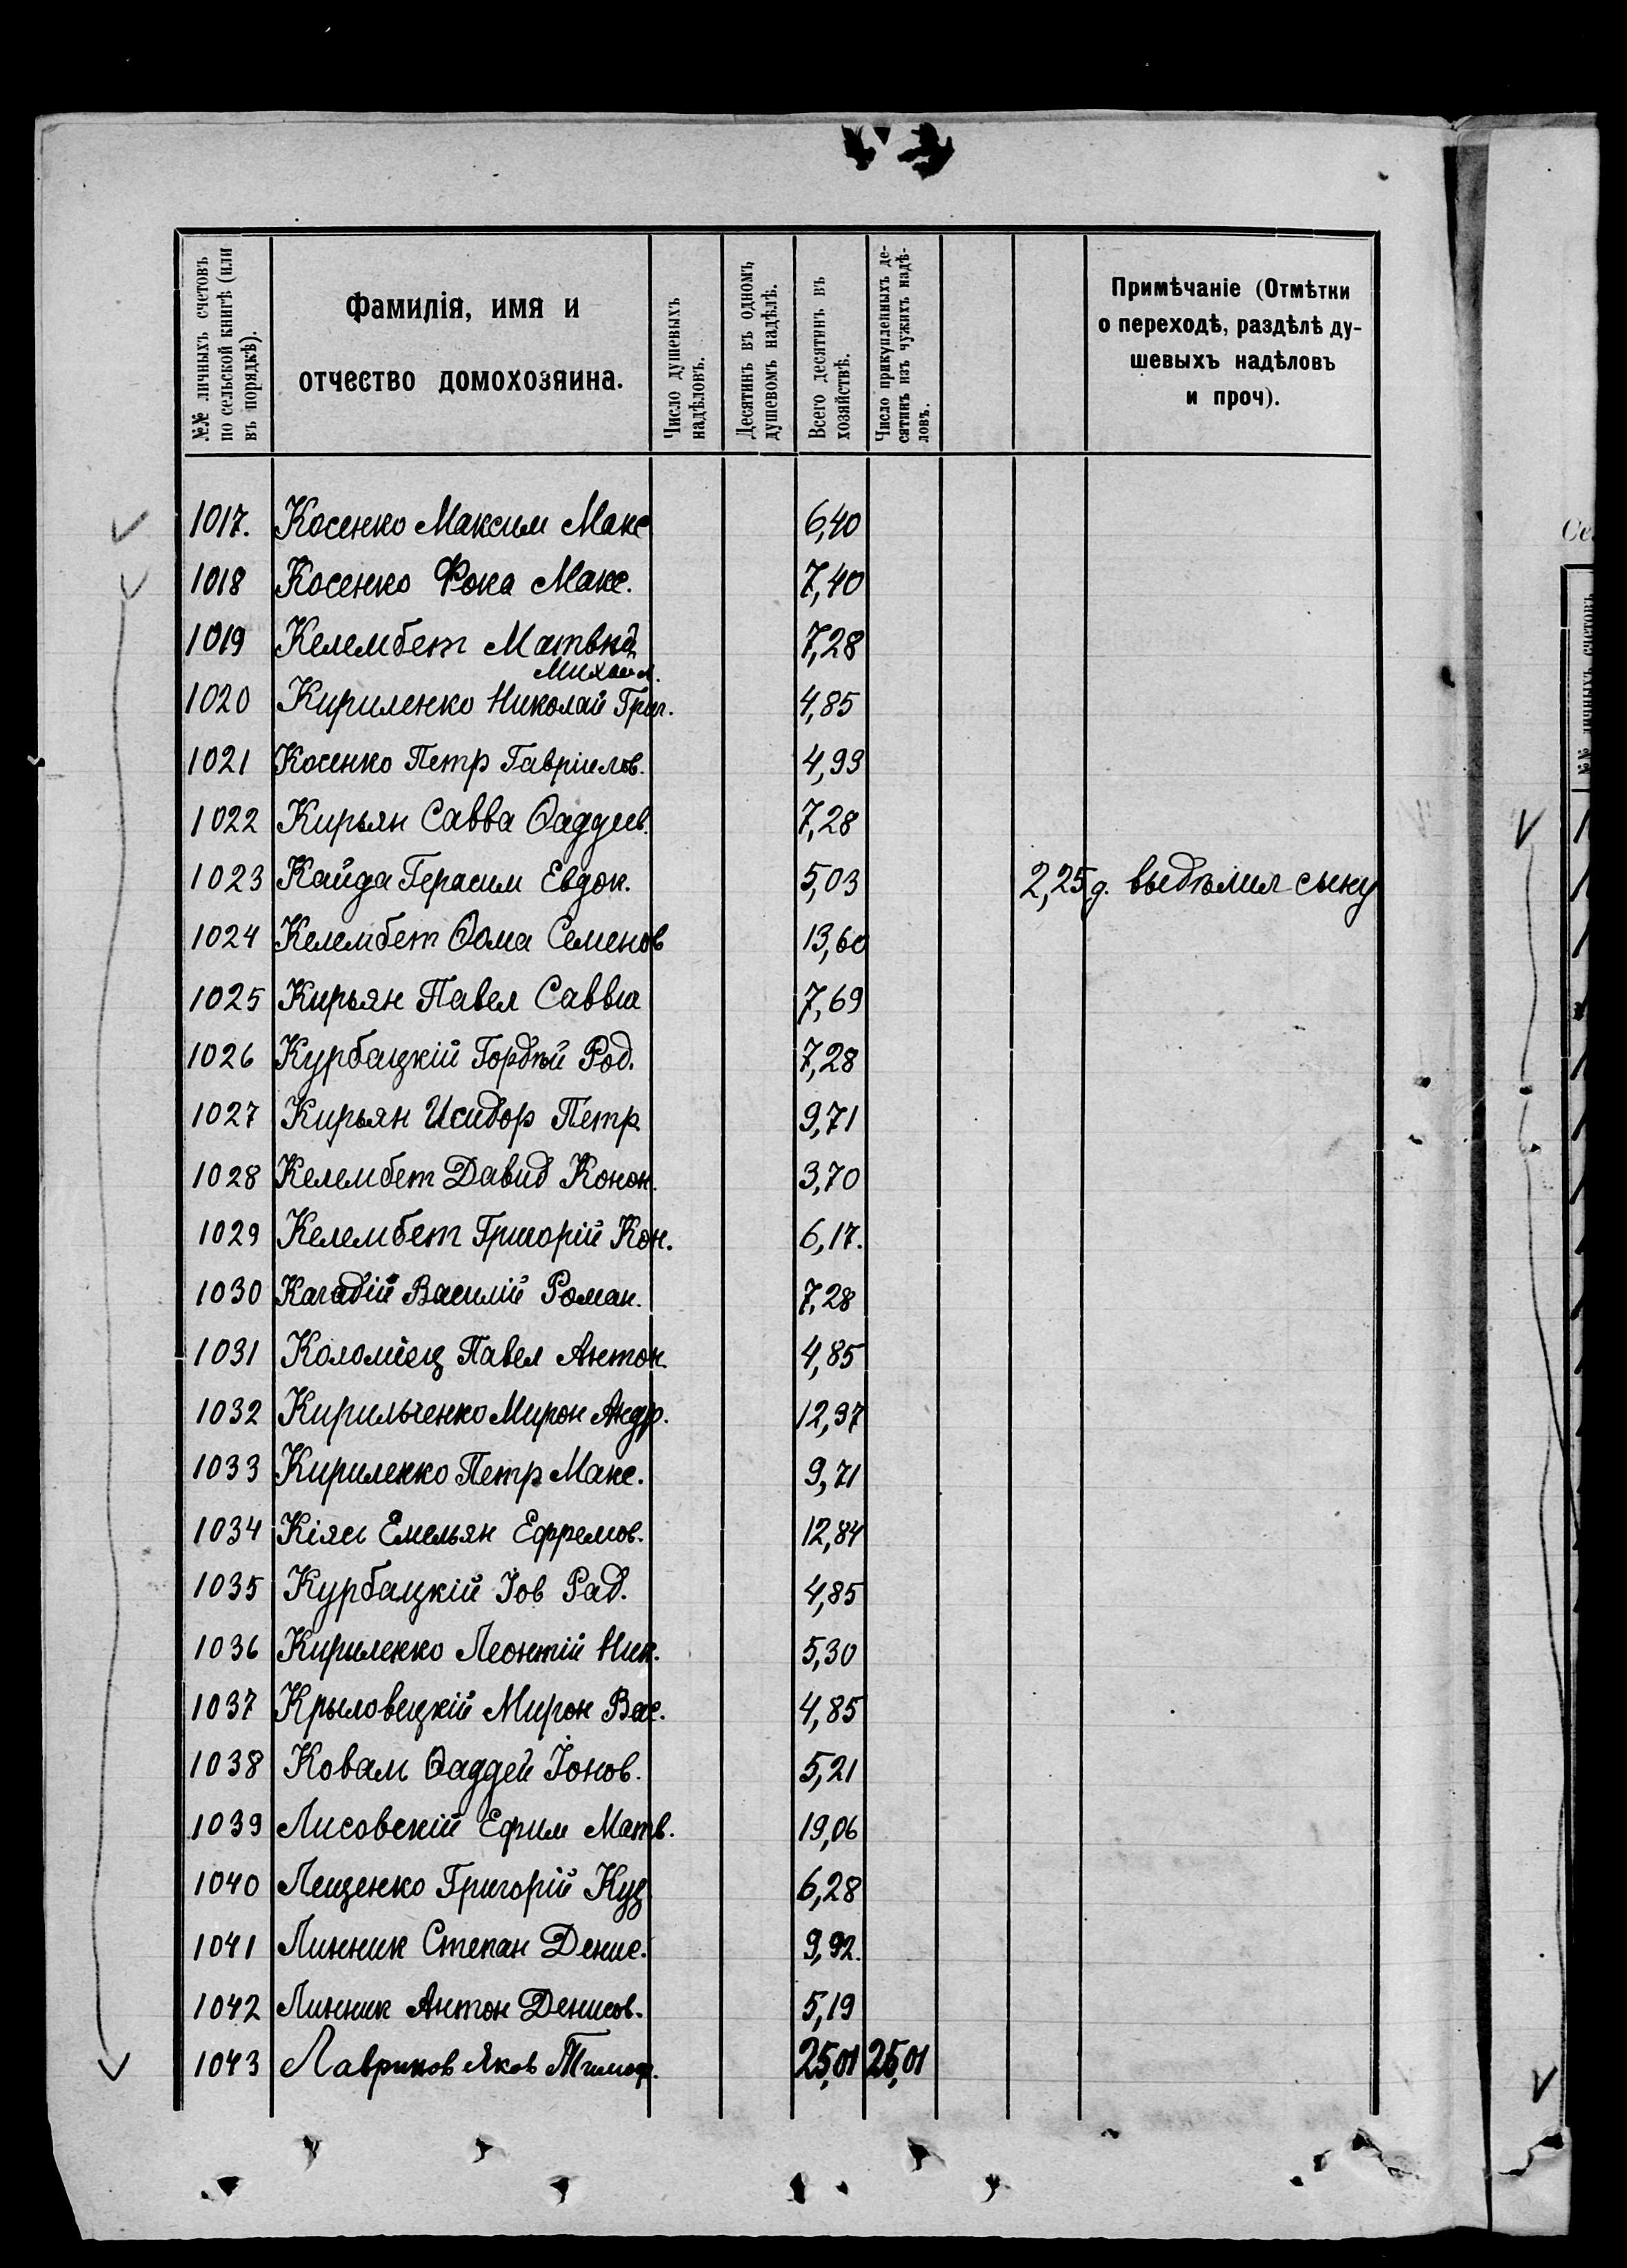 №№ личныхъ счетовъ
по сельской книгѣ (или
въ порядкѣ).
Фамилія, имя и
отчество домохозяина.
Число душевыхъ
надѣловъ.
Десятинъ въ одномъ
душевомъ надѣлѣ.
Всего десятинъ въ
хозяйствѣ.
Число прикупленныхъ де-
сятинъ изъ чужихъ надѣ-
ловъ.
Примѣчаніе (Отмѣтки
о переходѣ, раздѣлѣ ду-
шевыхъ надѣловъ
и проч).
1017. Косенко Максим Макс 6,40
1018 Косенко Фока Макс. 7,40
1019 Келембет Матвѣй 7,28
Михаил.
1020 Кириленко Николай Григ. 4,85
1021 Косенко Петр Гавріилов. 4,99
1022 Кирьян Савва Ѳаддеев. 7,28
1023 Кайда Герасим Евдок. 5,03 2,25 д. выдѣлил сыну
1024 Келембет Ѳома Семенов 13,60
1025 Кирьян Павел Саввич 7,69
1026 Курбацкій Гордѣй Род. 7,28
1027 Кирьян Исидор Петр. 9,71
1028 Келембет Давид Конон. 3,70
1029 Келембет Григорій Кон. 6,17.
1030 Кагадій Василій Роман. 7,28
1031 Коломіец Павел Антон. 4,85
1032 Кирильченко Мирон Андр. 12,37
1033 Кириленко Петр Макс. 9,71
1034 Кіясь Емельян Ефремов. 12,84
1035 Курбацкій Іов Рад. 4,85
1036 Кириленко Леонтій Ник. 5,30
1037 Крыловецкій Мирон Вас. 4,85
1038 Коваль Ѳаддей Іонов. 5,21
1039 Лисовскій Ефим Матв. 19,06
1040 Лещенко Григорій Куз 6,28
1041 Линник Степан Денис. 9,92.
1042 Линник Антон Денисов. 5,19
1043 Лавриков Яков Тимоф. 25,01 25,01